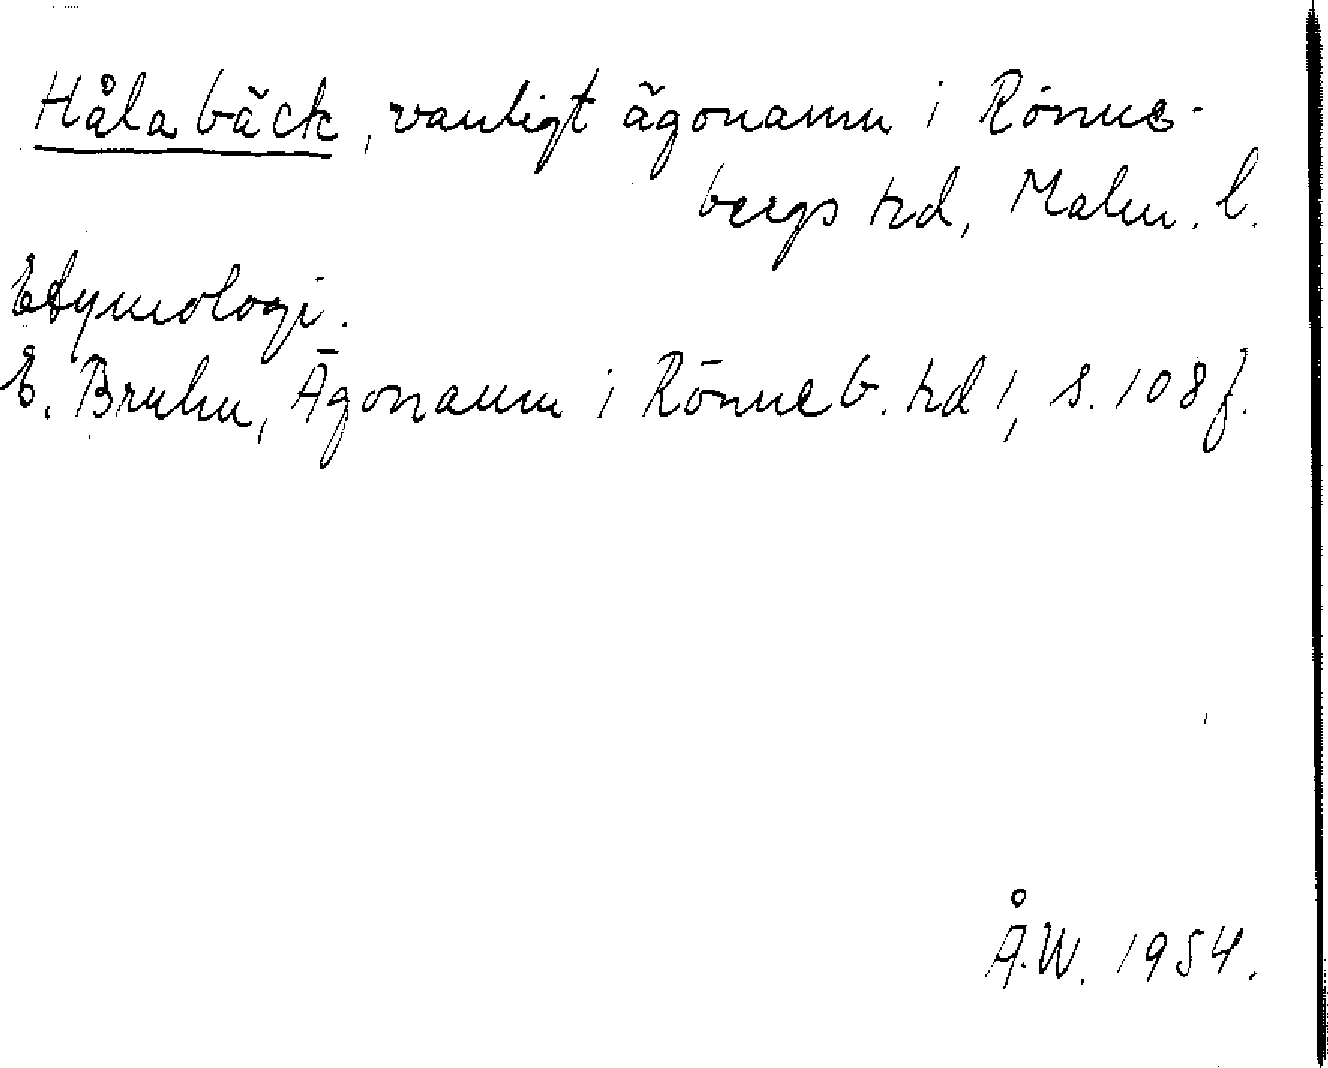 Håla bäck, vanligt ägonamn i Rönne-
bergs hd, Malm. l.
Etymologi.
E. Bruhn, Ägonamn i Rönneb. hd 1, s. 108 f.
Å.W. 1954.